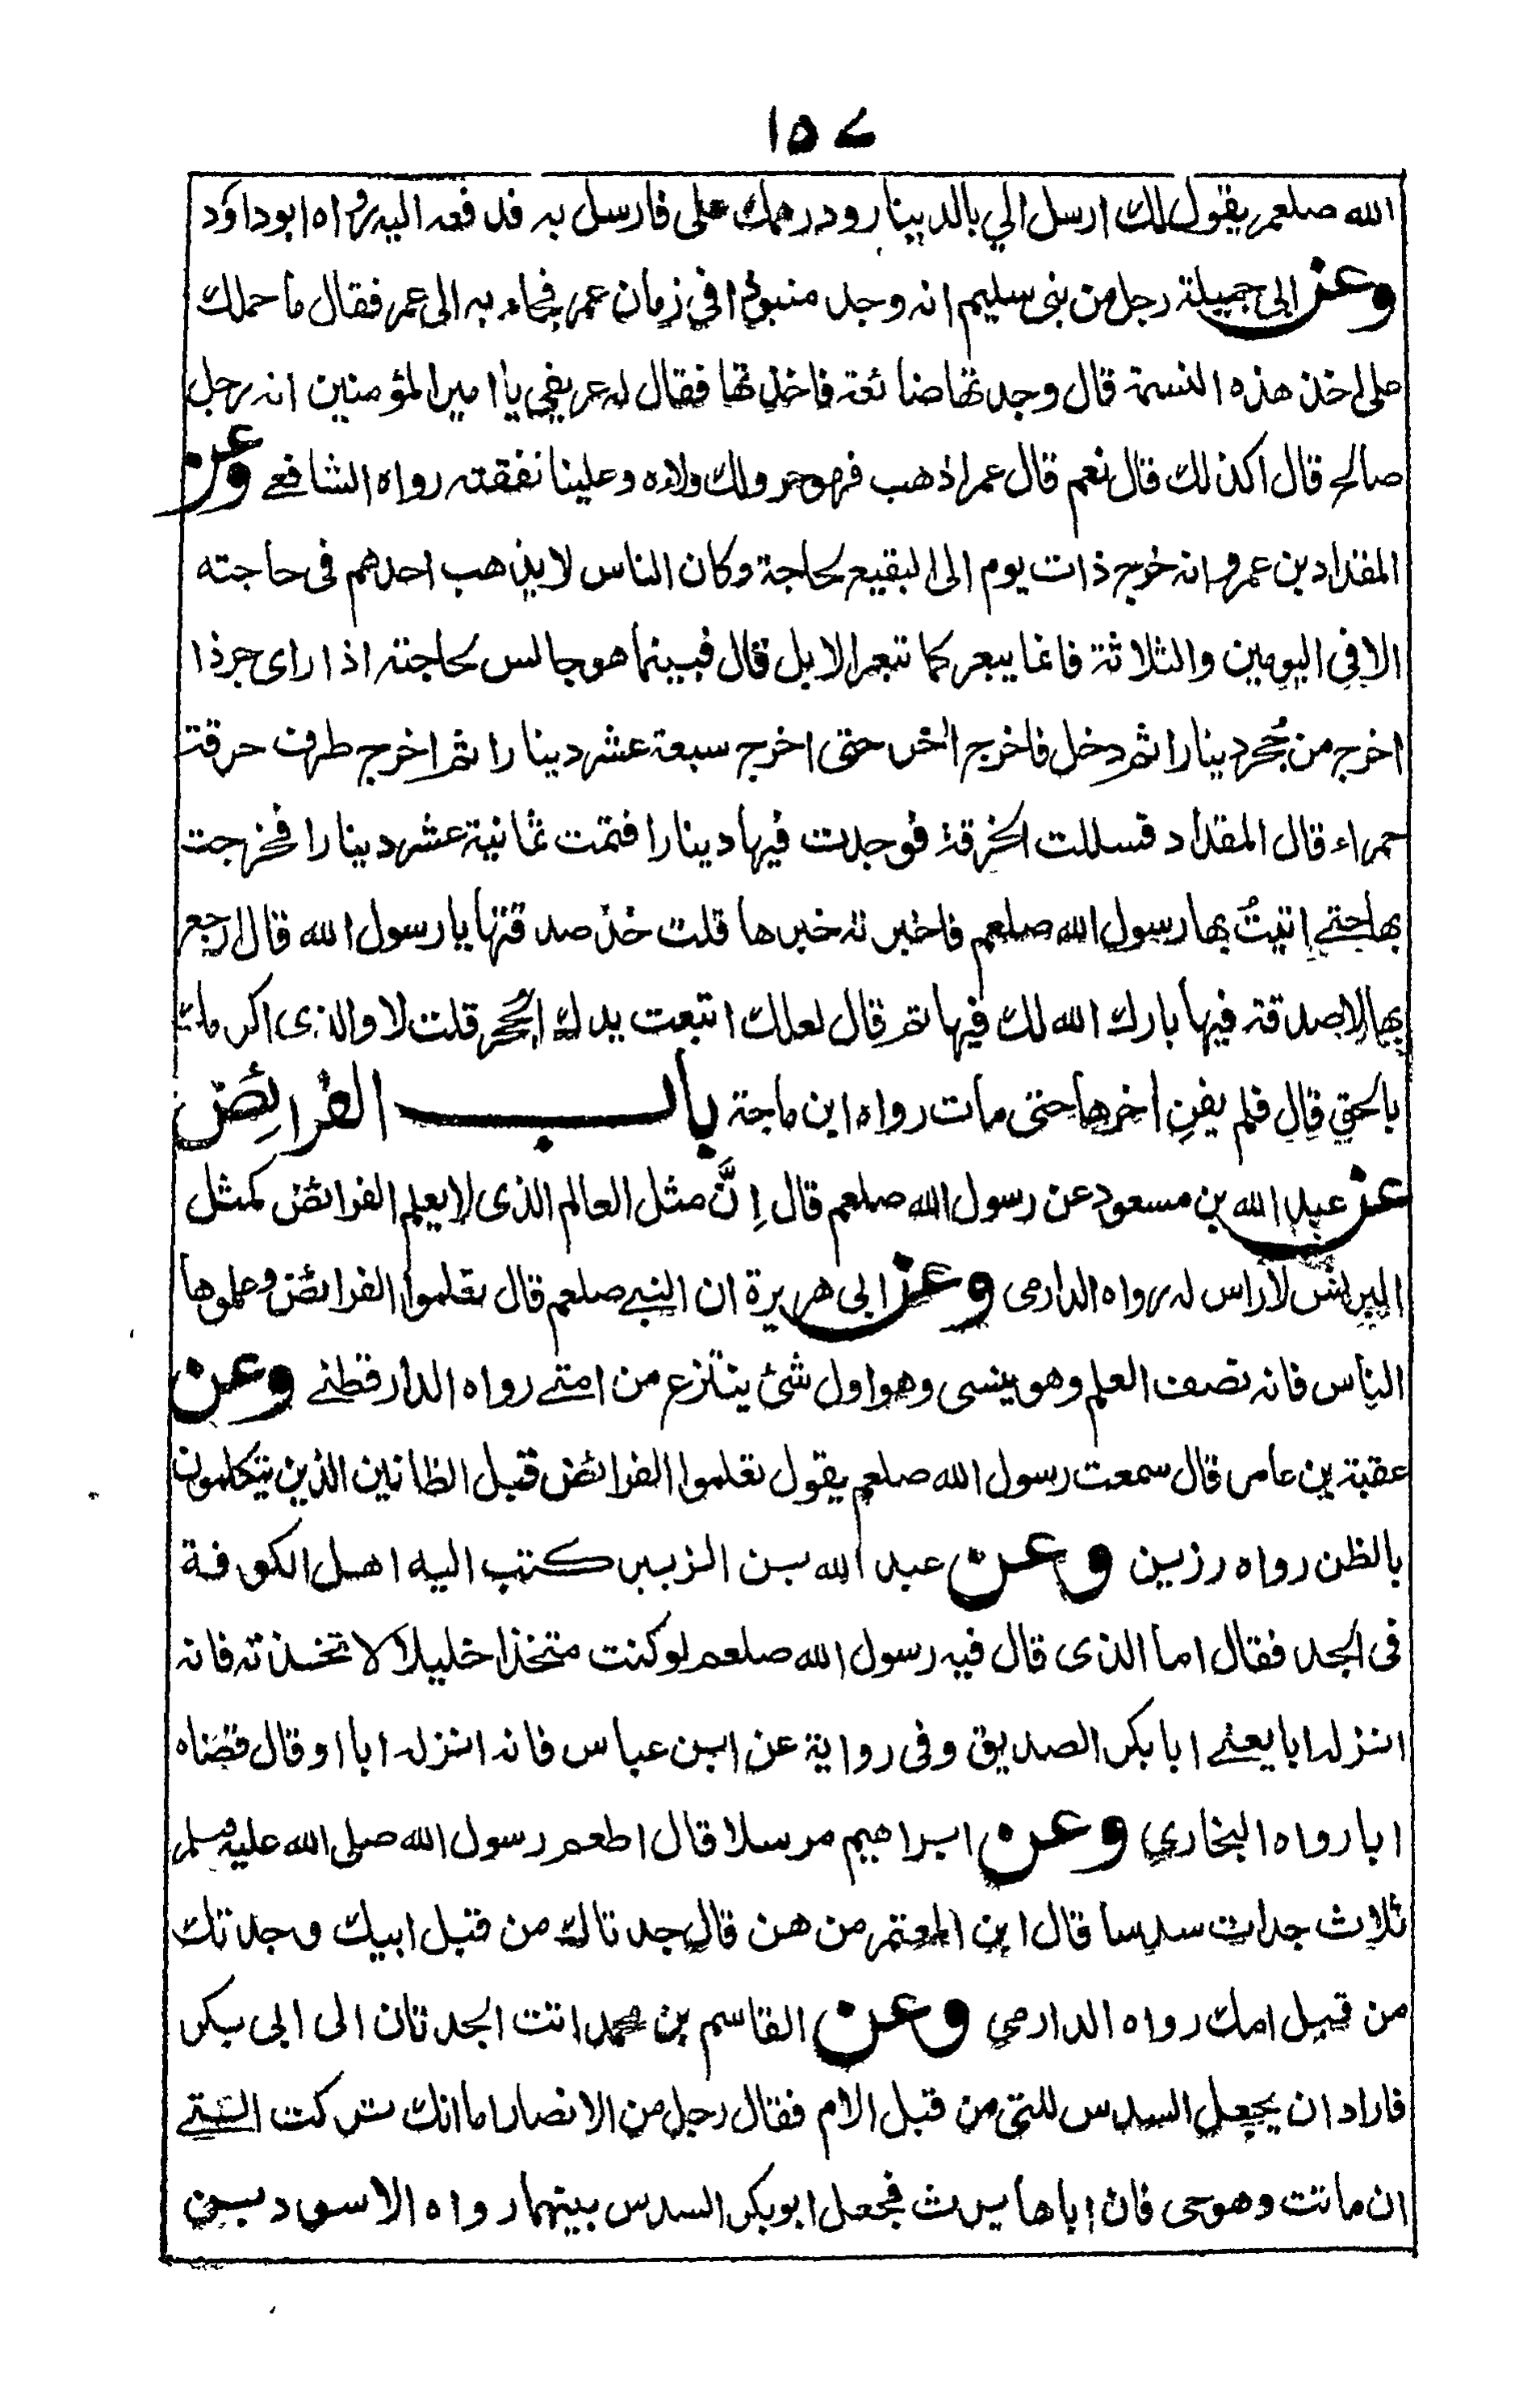 ١٥٧
الله صلعم يقول لك ارسل الي بالدينار ودرهمك على فارسل به فدفعه اليه رواه ابوداود
وعن ابى جميلة رجل من بنى سليم انه وجد منبوذا في زمان عمر فجاء به الى عمر فقال ما حملك
على اخذ هذه النسمة قال وجدتها ضائعة فاخذتها فقال له عريفي يا امير المؤمنين انه رجل
صالح قال اكذلك قال نعم قال عمر اذهب فهو حر ولك ولاءه وعلينا نفقته رواه الشافعے وعن
المقداد بن عمرو انه خرج ذات يوم الى البقيع لحاجة وكان الناس لا يذهب احدهم فى حاجته
الا في اليومين والثلاثة فانما يبعر كما تبعر الابل قال فبينما هو جالس لحاجته اذا راى جرذا
اخرج من جُحر دينارا ثم دخل فاخرج اخر حتى اخرج سبعة عشر دينارا ثم اخرج طرف حرقة
حمراء قال المقداد فسللت الخرقة فوجدت فيها دينارا فتمت ثمانية عشر دينارا فخرجت
بها حتے اتيتُ بها رسول الله صلعم فاخبرته خبرها قلت خذ صدقتها يا رسول الله قال ارجع
بها لا صدقة فيها بارك الله لك فيها ثم قال لعلك اتبعت يدك الجُحر قلت لا والذى اكرمك
بالحق قال فلم يفن اخرها حتى مات رواه ابن ماجة باب الفرائض
عن عبد الله بن مسعود عن رسول الله صلعم قال اِنَّ مثل العالم الذى لا يعلم الفرائض كمثل
البرانس لا راس له رواه الدارمى وعن ابى هريرة ان النبے صلعم قال تعلموا الفرائض وعلموها
الناس فانه نصف العلم وهو ينسى وهو اول شئ ينتزع من امتے رواه الدارقطنے وعن
عقبة بن عامر قال سمعت رسول الله صلعم يقول تعلموا الفرائض قبل الظانين الذين يتكلمون
بالظن رواه رزين وعن عبد الله بن الزبير كتب اليه اهل الكوفة
فى الجد فقال اما الذى قال فيه رسول الله صلعم لو كنت متخذا خليلا لاتخذته فانه
انزله ابا يعنے ابا بكر الصديق وفى رواية عن ابن عباس فانه انزله ابا او قال قضاه
ابا رواه البخاري وعن ابراهيم مرسلا قال اطعم رسول الله صلى الله عليه وسلم
ثلاث جدات سدسا قال ابن المعتمر من هن قال جدتاك من قبل ابيك وجدتك
من قبل امك رواه الدارمي وعن القاسم بن محمد اتت الجدتان الى ابى بكر
فاراد ان يجعل السدس للتى من قبل الام فقال رجل من الانصار اما انك تركت التے
ان ماتت وهو حى فان اباها يرث فجعل ابوبكر السدس بينهما رواه الاسود بن